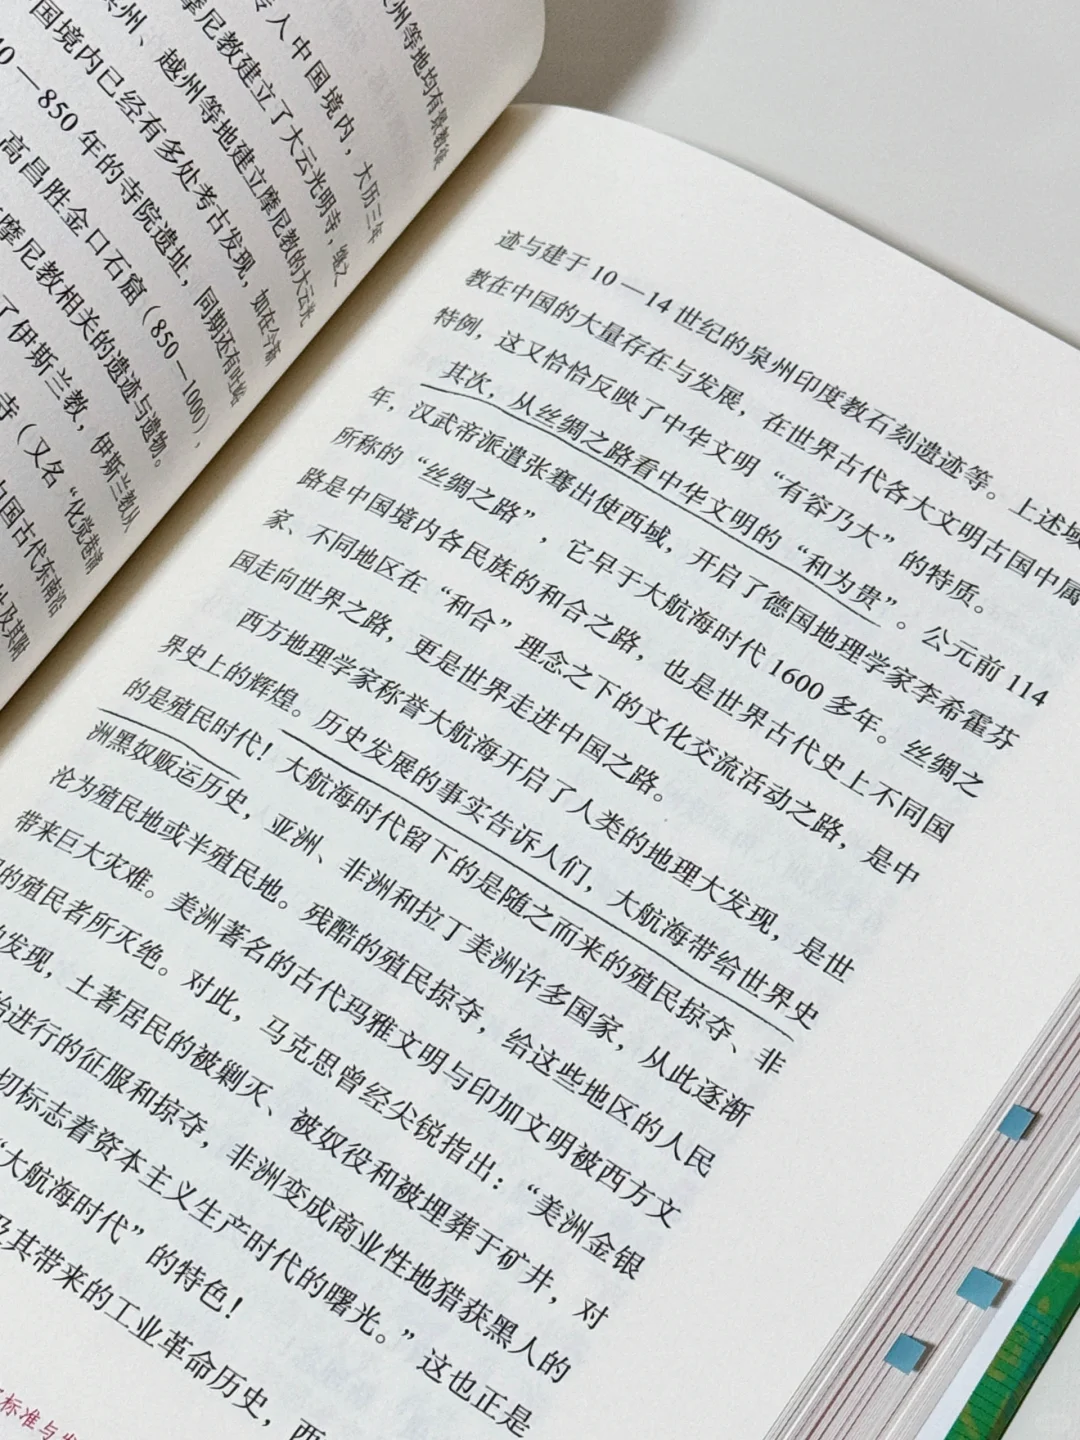 州等地均有景教
传人中国境内，大历三年
摩尼教建立了大云光明寺，继之
泉州、越州等地建立摩尼教的大云光
国境内已经有多处考古发现，如在今新
0—850年的寺院遗址，同期还有吐峪
高昌胜金口石窟（850—1000），
摩尼教相关的遗迹与遗物。
了伊斯兰教，伊斯兰教从
寺（又名“化觉巷清
中国古代东南沿
及其附
迹与建于10—14世纪的泉州印度教石刻遗迹等。上述域
教在中国的大量存在与发展，在世界古代各大文明古国中属
特例，这又恰恰反映了中华文明“有容乃大”的特质。
其次，从丝绸之路看中华文明的“和为贵”。公元前114
年，汉武帝派遣张骞出使西域，开启了德国地理学家李希霍芬
所称的“丝绸之路”，它早于大航海时代1600多年。丝绸之
路是中国境内各民族的和合之路，也是世界古代史上不同国
家、不同地区在“和合”理念之下的文化交流活动之路，是中
国走向世界之路，更是世界走进中国之路。
西方地理学家称誉大航海开启了人类的地理大发现，是世
界史上的辉煌。历史发展的事实告诉人们，大航海带给世界史
的是殖民时代！大航海时代留下的是随之而来的殖民掠夺、非
洲黑奴贩运历史，亚洲、非洲和拉丁美洲许多国家，从此逐渐
沦为殖民地或半殖民地。残酷的殖民掠夺，给这些地区的人民
带来巨大灾难。美洲著名的古代玛雅文明与印加文明被西方文
的殖民者所灭绝。对此，马克思曾经尖锐指出：“美洲金银
的发现，土著居民的被剿灭、被奴役和被埋葬于矿井，对
始进行的征服和掠夺，非洲变成商业性地猎获黑人的
切标志着资本主义生产时代的曙光。”这也正是
“大航海时代”的特色！
及其带来的工业革命历史，西
标准与